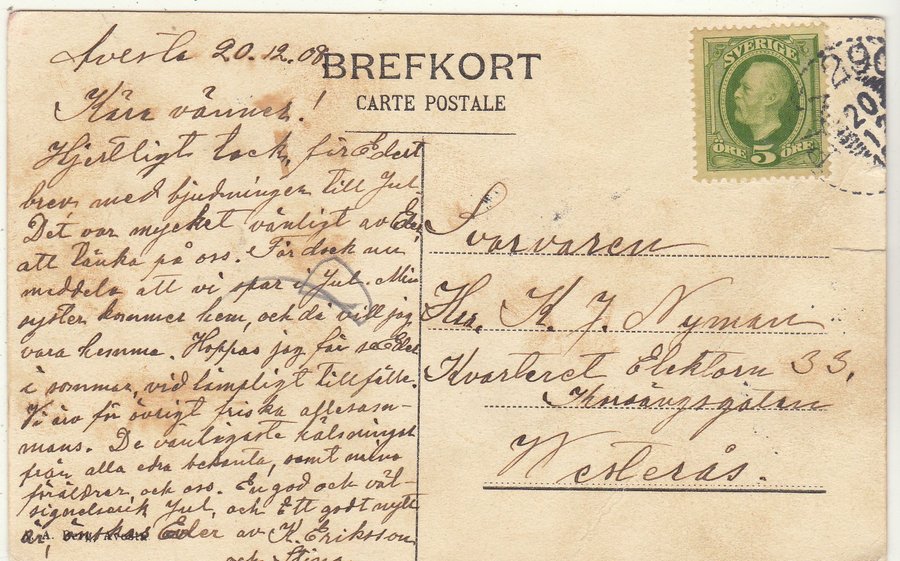 Avesta 20.12.08
BREFKORT
CARTE POSTALE
SVERIGE
ÖRE 5 ÖRE
Kära vänner!
Hjertligt tack, för Edert
brev med bjudningen till Jul.
Det var mycket vänligt av Eder
att tänka på oss. Får dock nu
meddela att vi spar i Jul. Min
syster kommer hem, och då vill jag
vara hemma. Hoppas jag får se Eder
i sommar, vid lämpligt tillfälle.
Vi äro för övrigt friska allesam-
mans. De vänligaste hälsningar
från alla edra bekanta, samt mina
föräldrar, och oss. En god och väl-
signelserik Jul, och Ett godt nytt
år, önskas Eder av K. Eriksson
och Stina
Svarvaren
Her. K. J. Nyman
Kvarteret Elektorn 33,
Westerås.